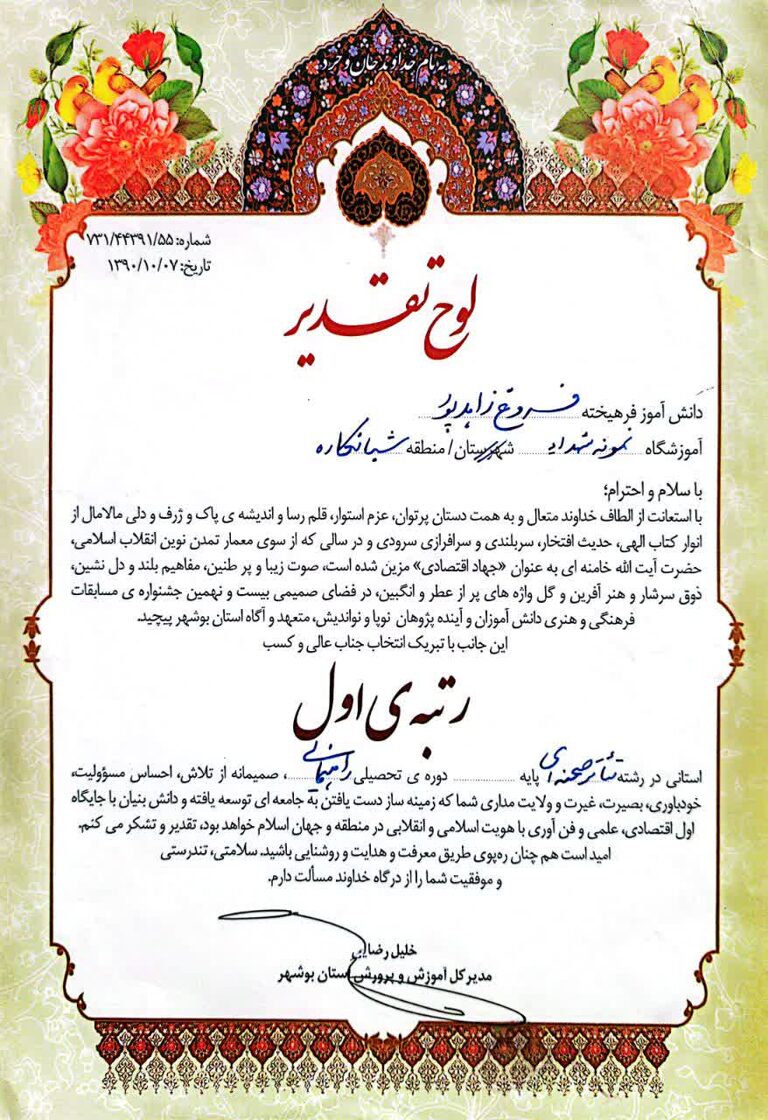 به نام خداوند جان و خرد
شماره: ۷۳۱/۴۴۳۹۱/۵۵
تاریخ: ۱۳۹۰/۱۰/۰۷
لوح تقدیر
دانش آموز فرهیخته فروغ زاهدپور
آموزشگاه نمونه شهدای شهرستان/ منطقه شبانکاره
با سلام و احترام؛
با استعانت از الطاف خداوند متعال و به همت دستان پرتوان، عزم استوار، قلم رسا و اندیشه ی پاک و ژرف و دلی مالامال از
انوار کتاب الهی، حدیث افتخار، سربلندی و سرافرازی سرودی و در سالی که از سوی معمار تمدن نوین انقلاب اسلامی،
حضرت آیت الله خامنه ای به عنوان «جهاد اقتصادی» مزین شده است، صوت زیبا و پر طنین، مفاهیم بلند و دل نشین،
ذوق سرشار و هنر آفرین و گل واژه های پر از عطر و انگبین، در فضای صمیمی بیست و نهمین جشنواره ی مسابقات
فرهنگی و هنری دانش آموزان و آینده پژوهان نوپا و نواندیش، متعهد و آگاه استان بوشهر پیچید.
این جانب با تبریک انتخاب جناب عالی و کسب
رتبه ی اول
استانی در رشته تئاتر صحنه ای پایه دوره ی تحصیلی راهنمایی، صمیمانه از تلاش، احساس مسؤولیت،
خودباوری، بصیرت، غیرت و ولایت مداری شما که زمینه ساز دست یافتن به جامعه ای توسعه یافته و دانش بنیان با جایگاه
اول اقتصادی، علمی و فن آوری با هویت اسلامی و انقلابی در منطقه و جهان اسلام خواهد بود، تقدیر و تشکر می کنم.
امید است هم چنان ره‌پوی طریق معرفت و هدایت و روشنایی باشید. سلامتی، تندرستی
و موفقیت شما را از درگاه خداوند مسألت دارم.
خلیل رضایی
مدیر کل آموزش و پرورش استان بوشهر